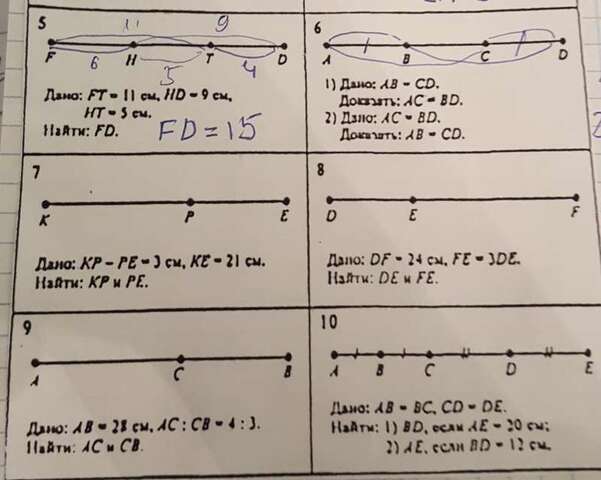 5
11
9
F
H
T
D
6
5
4
Дано: FT = 11 см, HD = 9 см,
HT = 5 см.
Найти: FD.
FD = 15
6
A
B
C
D
1) Дано: AB = CD.
Доказать: AC = BD.
2) Дано: AC = BD.
Доказать: AB = CD.
7
K
P
E
Дано: KP – PE = 3 см, KE = 21 см.
Найти: KP и PE.
8
D
E
F
Дано: DF = 24 см, FE = 3DE.
Найти: DE и FE.
9
A
C
B
Дано: AB = 28 см, AC : CB = 4 : 3.
Найти: AC и CB.
10
A
B
C
D
E
Дано: AB = BC, CD = DE.
Найти: 1) BD, если AE = 20 см;
2) AE, если BD = 12 см.